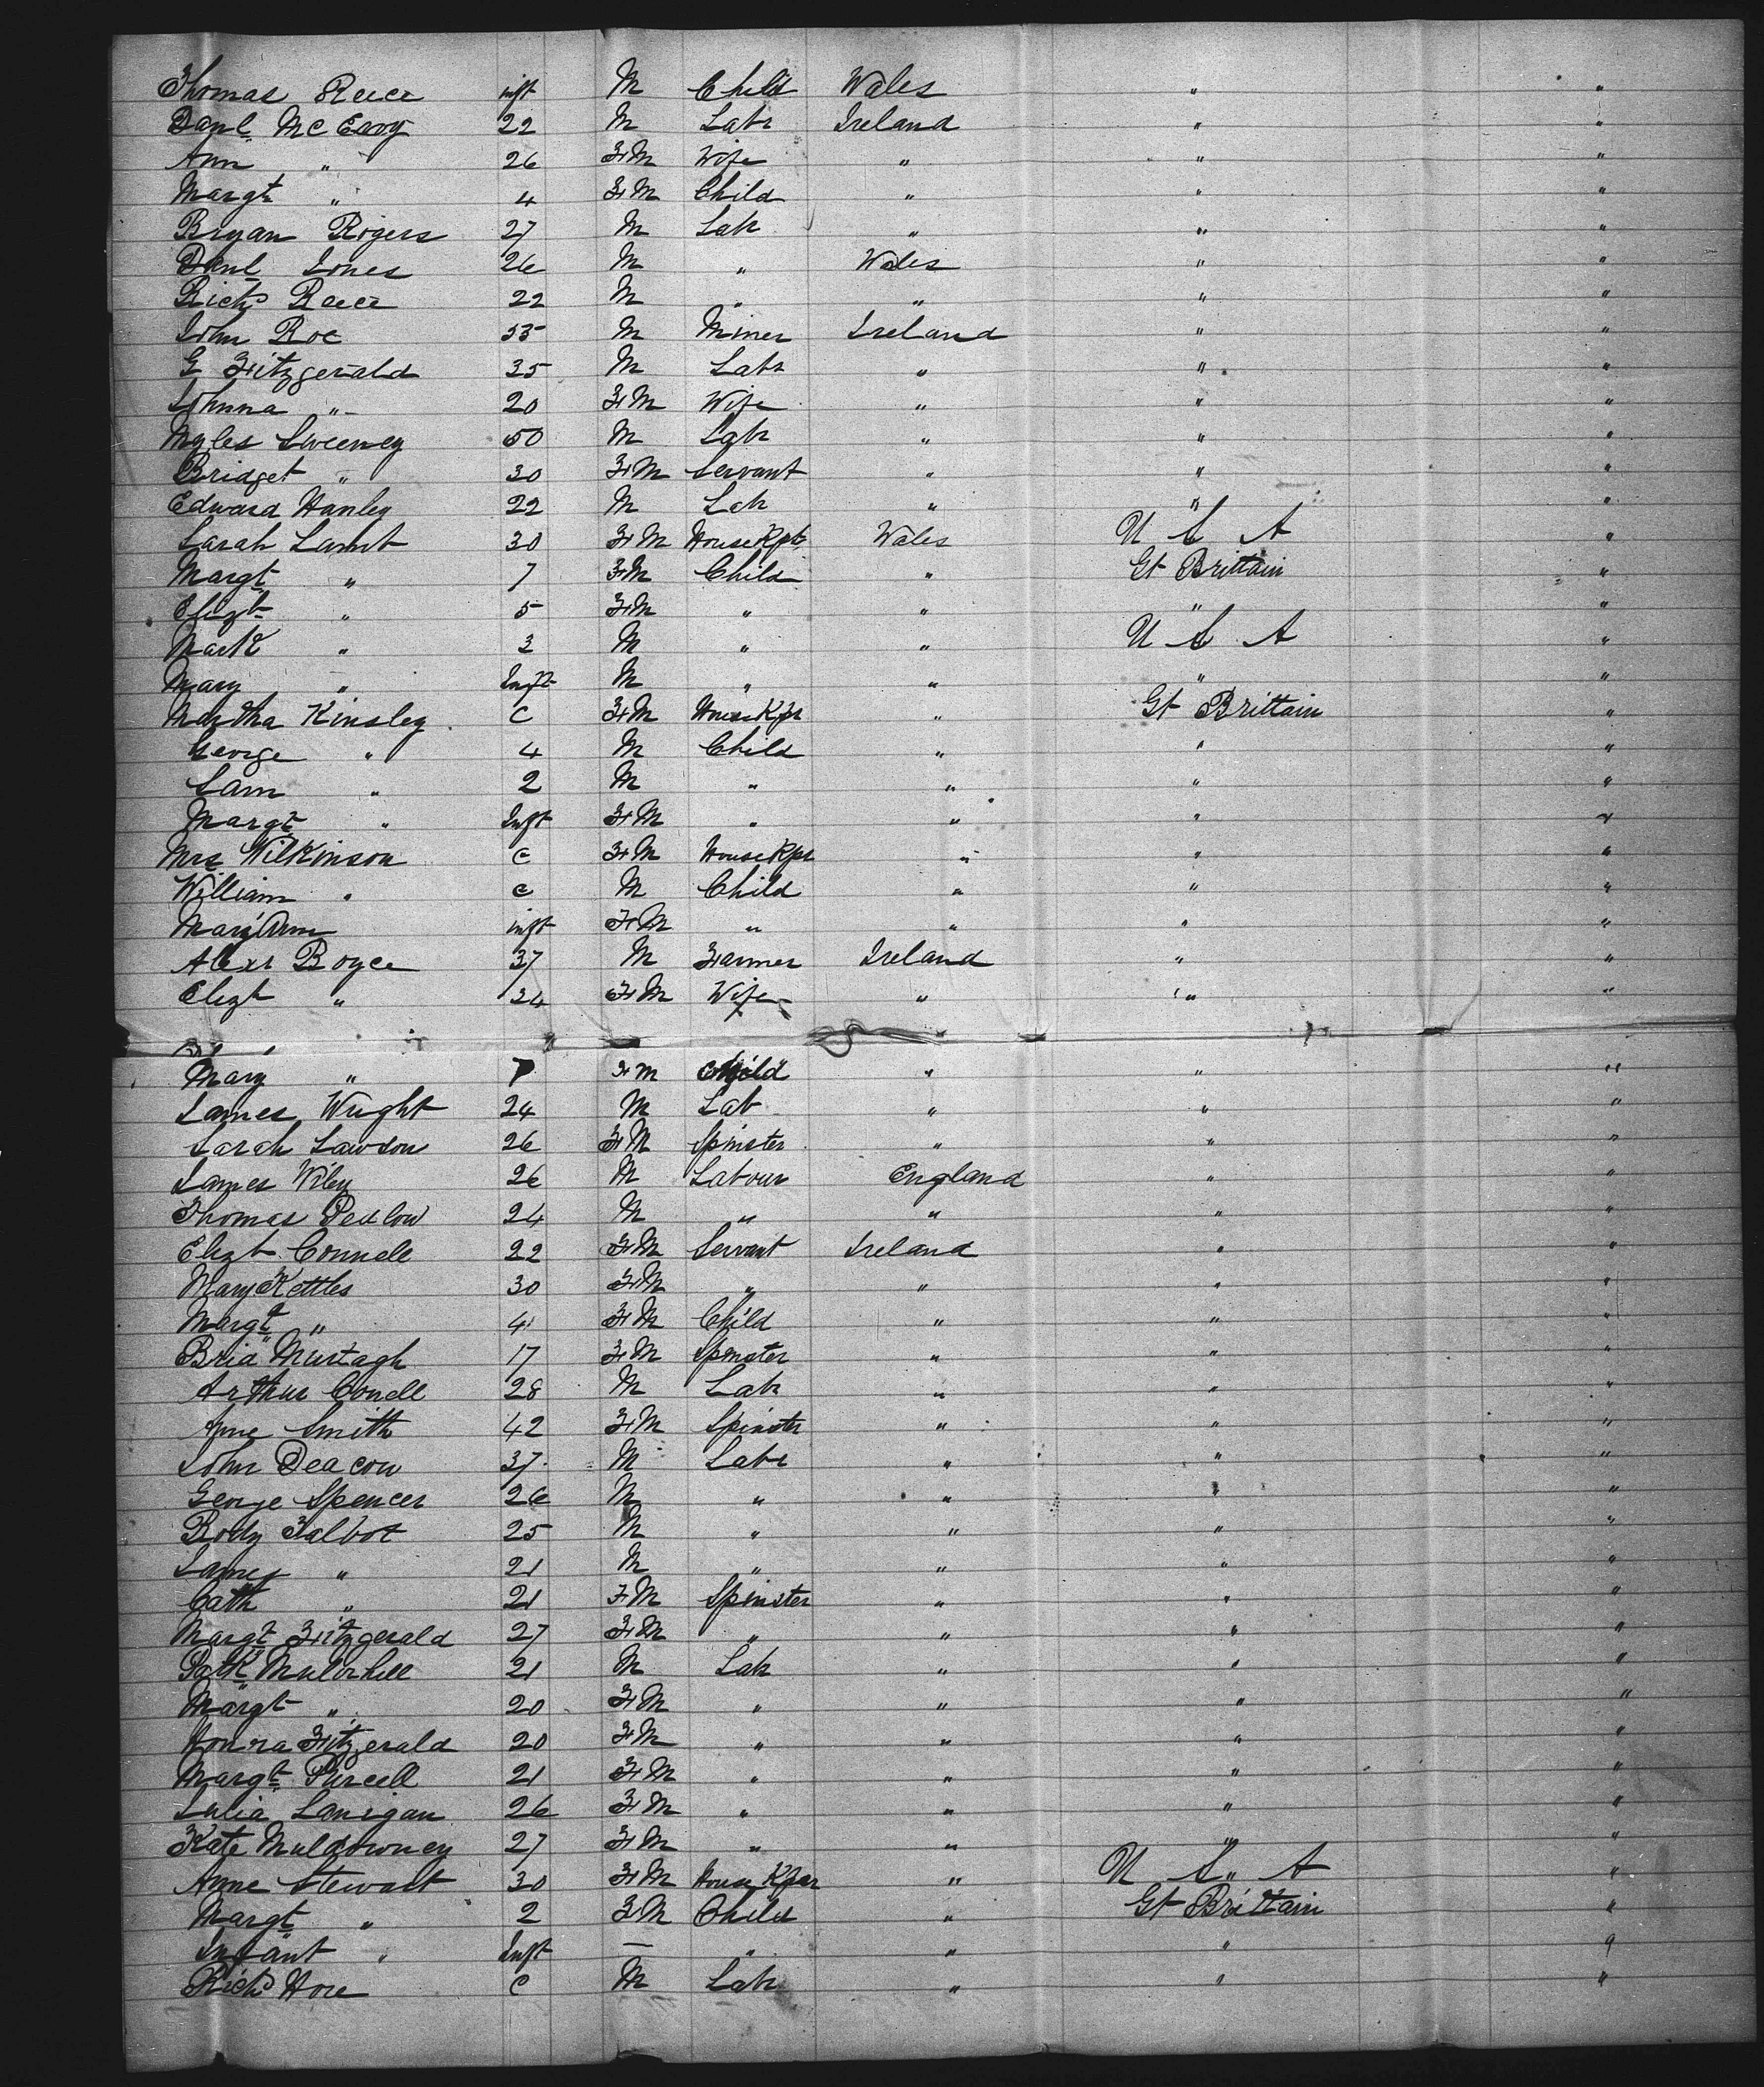 Thomas Reece inft M Child Wales " "
Danl McEvoy 22 M Labr Ireland " "
Ann " 26 FM Wife " " "
Margt " 4 FM Child " " "
Bryan Rogers 27 M Labr " " "
Danl Jones 26 M " Wales " "
Richd Reece 22 M " " " "
John Roe 55 M Miner Ireland " "
G Fitzgerald 35 M Labr " " "
Johnna " 20 FM Wife " " "
Myles Sweeney 50 M Labr " " "
Bridget " 30 FM Servant " " "
Edward Hanley 22 M Labr " " "
Sarah Lamb 30 FM HouseKpr Wales U S A "
Margt " 7 FM Child " Gt Brittain "
Elizt " 5 FM " " " "
Mark " 3 M " " U S A "
Mary " Inft M " " " "
Martha Kinsley C FM HouseKpr " Gt Brittain "
George " 4 M Child " " "
Sam " 2 M " " " "
Margt " Inft FM " " " "
Mrs Wilkinson C FM HouseKpr " " "
William " C M Child " " "
Mary Ann inft FM " " " "
Alexr Boyce 37 M Farmer Ireland " "
Elizt " 34 FM Wife " " "
Mary " 7 FM Child " " "
James Wright 24 M Lab " " "
Sarah Lawson 26 FM Spinster " " "
James Wiley 26 M Labour England " "
Thomas Pedlow 24 M " " " "
Elizt Connell 22 FM Servant Ireland " "
Mary Kettles 30 FM " " " "
Margt " 4 FM Child " " "
Brid Murtagh 17 FM Spinster " " "
Arthur Conell 28 M Labr " " "
Anne Smith 42 FM Spinster " " "
John Deacon 37 M Labr " " "
George Spencer 26 M " " " "
Rody Talbot 25 M " " " "
James " 21 M " " " "
Cath " 21 FM Spinster " " "
Margt Fitzgerald 27 FM " " " "
Patk Mulvihill 21 M Labr " " "
Margt " 20 FM " " " "
Honra Fitzgerald 20 FM " " " "
Margt Purcell 21 FM " " " "
Julia Lanigan 26 FM " " " "
Kate Muldowney 27 FM " " " "
Anne Stewart 30 FM House Kper " U S A "
Margt " 2 FM Child " Gt Brittain "
Infant " Inft — " " " "
Richd Hore C M Labr " " "